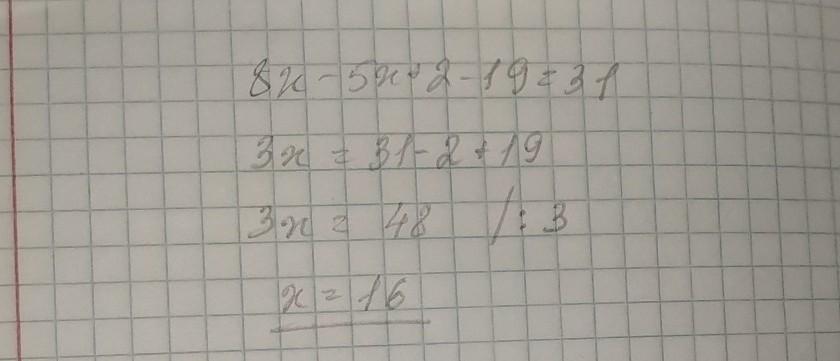 8x - 5x + 2 - 19 = 31
3x = 31 - 2 + 19
3x = 48 / : 3
x = 16